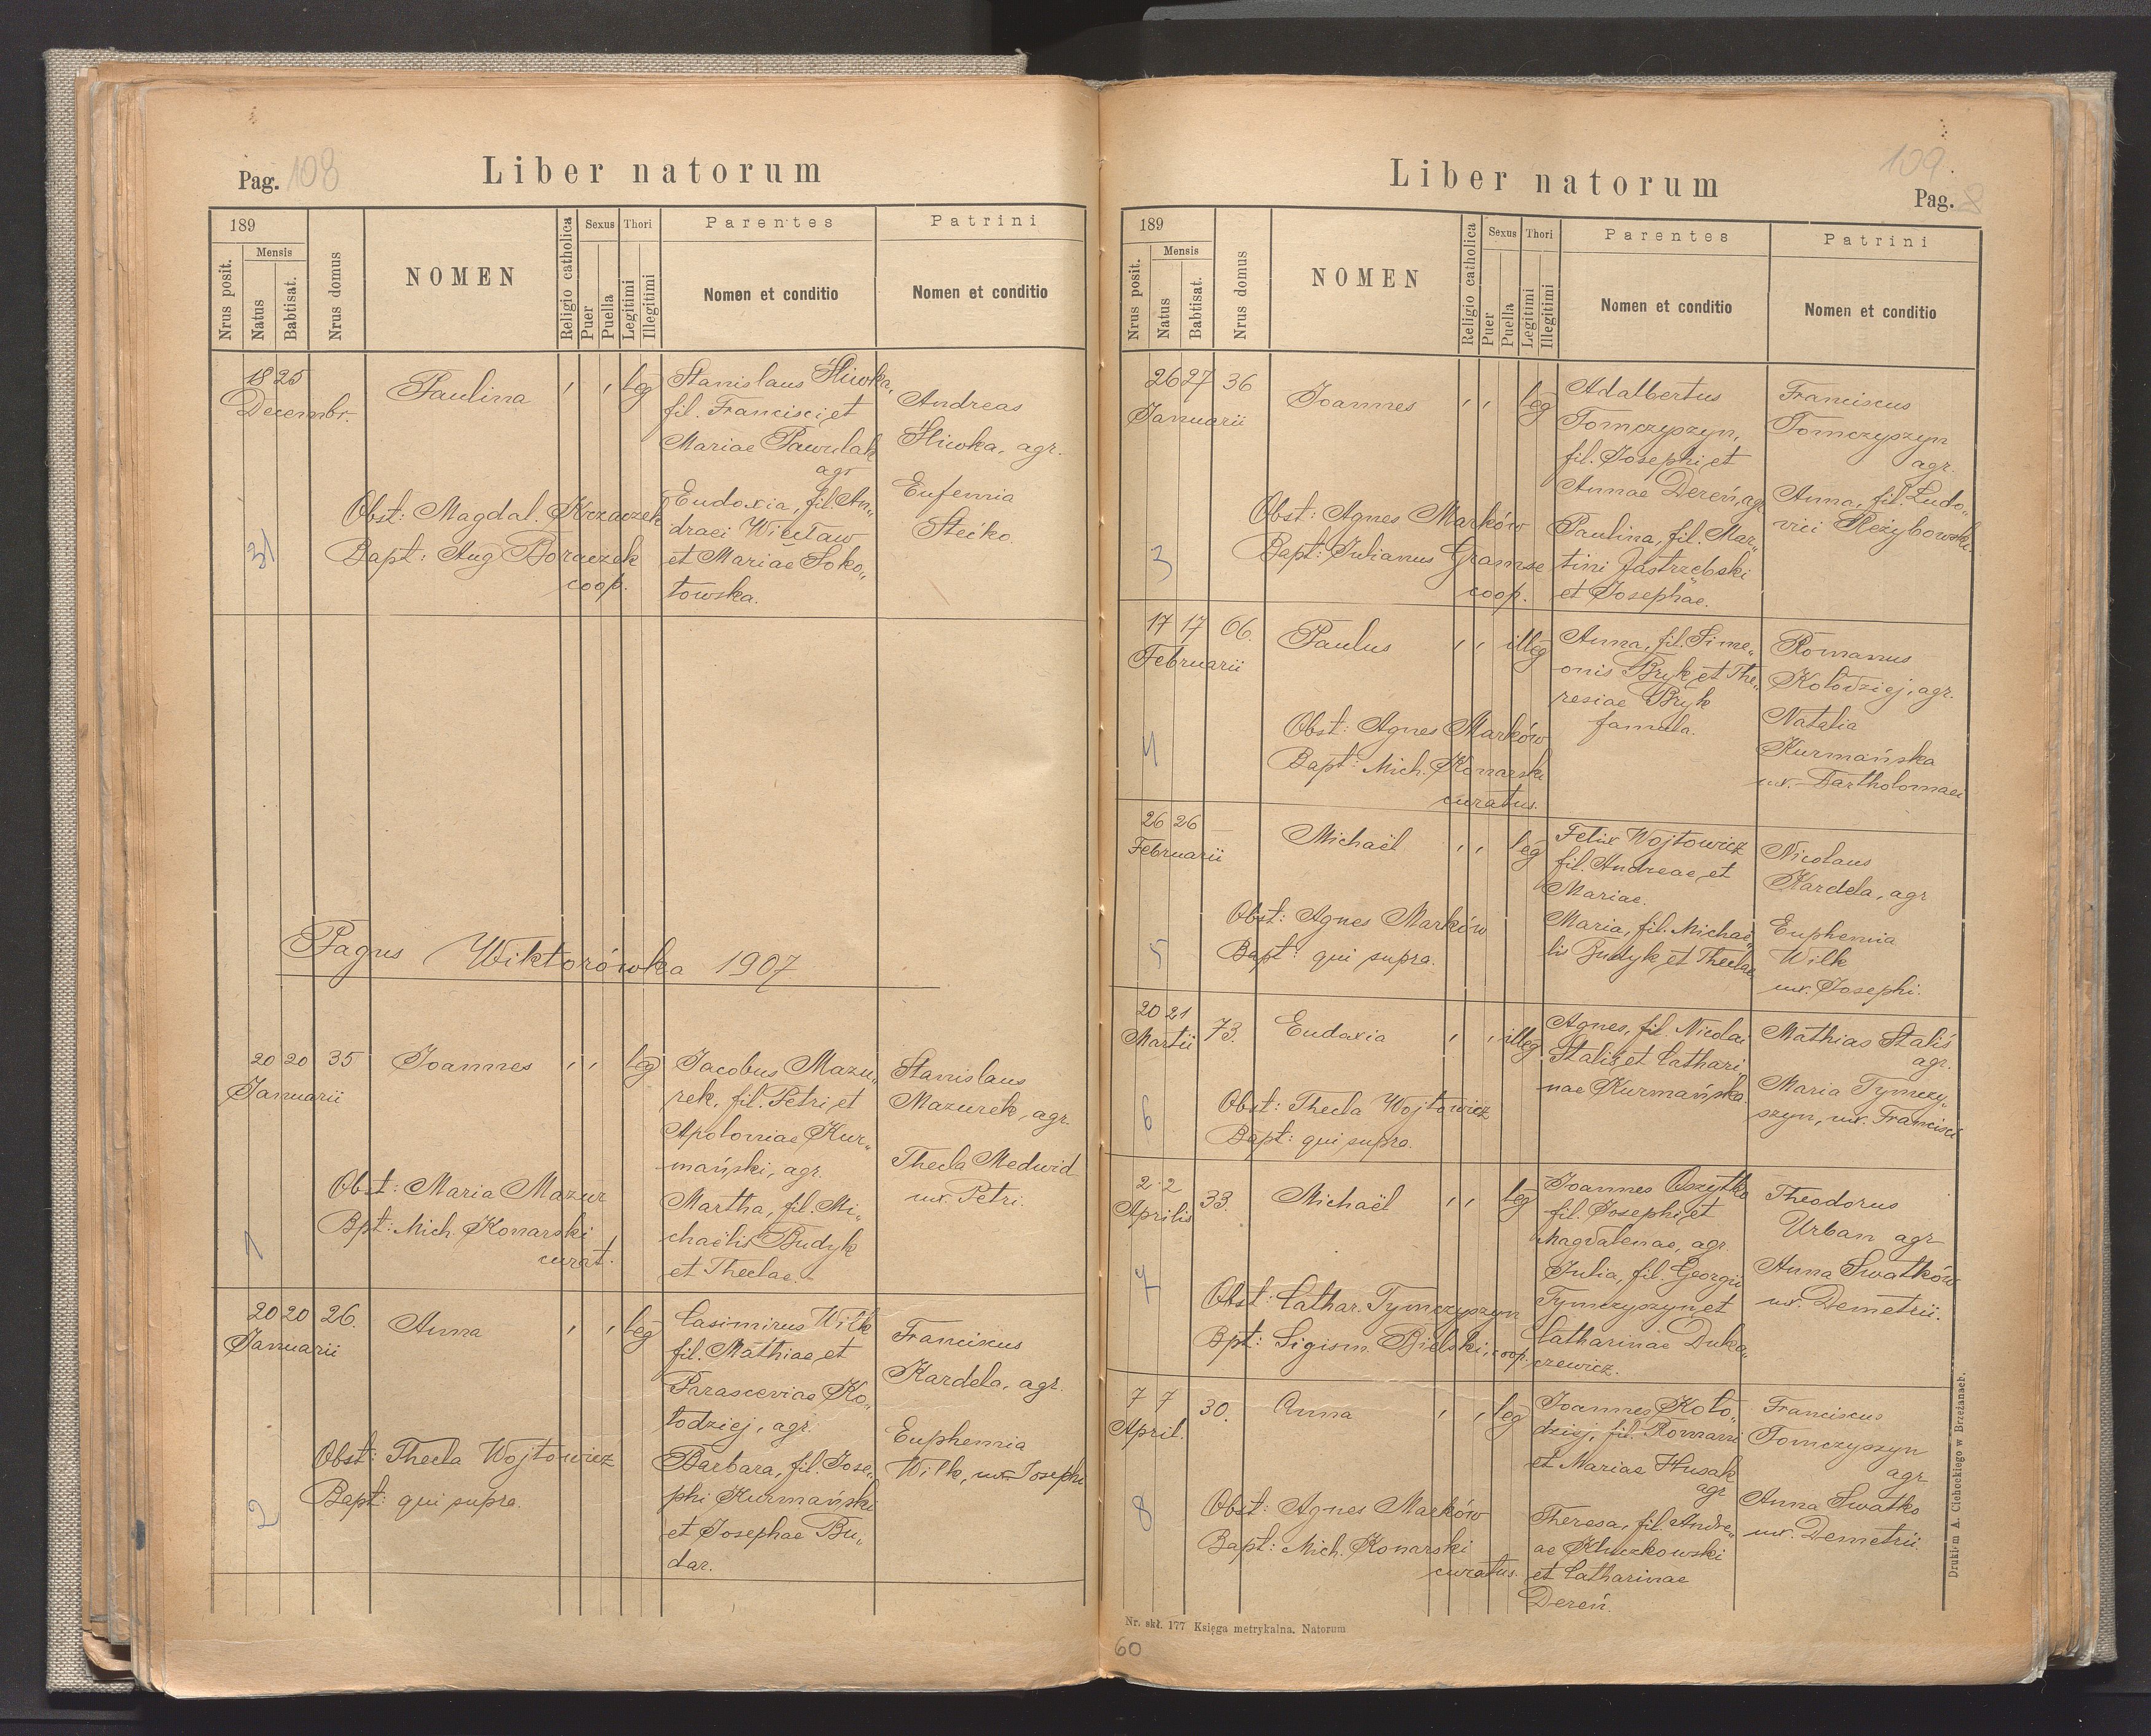 Pag. 108
Liber natorum
189
Nrus posit.
Mensis
Natus
Babtisat.
Nrus domus
NOMEN
Religio catholica
Sexus
Puer
Puella
Thori
Legitimi
Illegitimi
Parentes
Nomen et conditio
Patrini
Nomen et conditio
18 25
Decembr.
Paulina
leg
Stanislaus Śliwka,
fil. Francisci, et
Mariae Pawulak
agr
Eudoxia, fil. An„
draei Więcław
et Mariae Soko„
łowska.
Andreas
Śliwka, agr.
Eufemia
Stecko.
Obst: Magdal. Krzaczek
Bapt: Aug Boraczek
coop.
31
Pagus Wiktorówka 1907
20 20 35
Januarii
Joannes
leg
Jacobus Mazu„
rek, fil. Petri et
Apoloniae Kur„
mański, agr.
Martha, fil. Mi„
chaëlis Budyk
et Theclae.
Stanislaus
Mazurek, agr.
Thecla Medwid
ux. Petri.
Obst: Maria Mazur
Bpt: Mich. Konarski
curat.
1
20 20 26.
Januarii
Anna
leg
Casimirus Wilk
fil. Mathiae et
Parasceviae Ko„
łodziej, agr.
Barbara, fil. Jose„
phi Kurmański
et Josephae Bu„
dar.
Franciscus
Kardela, agr.
Euphemia
Wilk, ux. Josephi
Obst: Thecla Wojtowicz
Bapt: qui supra.
2
Liber natorum
109
Pag. 8
189
Nrus posit.
Mensis
Natus
Babtisat.
Nrus domus
NOMEN
Religio catholica
Sexus
Puer
Puella
Thori
Legitimi
Illegitimi
Parentes
Nomen et conditio
Patrini
Nomen et conditio
26 27 36
Januarii
Joannes
leg
Adalbertus
Tomczyszyn,
fil. Josephi et
Annae Dereń, agr
Paulina, fil. Mar„
tini Jastrzębski
et Josephae.
Franciscus
Tomczyszyn
agr.
Anna, fil. Ludo„
vici
Obst: Agnes Marków
Bapt: Julianus Gramse
coop.
3
17 17 66.
Februarii
Paulus
illeg
Anna, fil. Sime„
onis Bryk et The„
resiae Bryk
famula.
Romanus
Kołodziej, agr.
Natalia
Kurmańska
ux. Bartholomaei
Obst: Agnes Marków
Bapt: Mich. Konarski
curatus.
4
26 26
Februarii
Michaël
leg
Felix Wojtowicz
fil. Andreae et
Mariae.
Maria, fil. Michaë„
lis Budyk et Theclae
Nicolaus
Kardela, agr
Euphemia
Wilk
ux. Josephi.
Obst: Agnes Marków
Bapt: qui supra.
5
20 21
Martii
73.
Eudoxia
illeg
Agnes, fil. Nicolai
Staliś et Cathari„
nae Kurmańska.
Mathias Staliś
agr.
Maria Tymczy„
szyn, ux. Francisci
Obst: Thecla Wojtowicz
Bapt: qui supra.
6
2 2
Aprilis
33.
Michaël
leg
Joannes Oszytko
fil. Josephi et
Magdalenae, agr.
Julia, fil. Georgii
Tymczyszyn et
Catharinae Duka„
czewicz.
Theodorus
Urban agr
Anna Swatków
ux. Demetrii.
Obst: Cathar. Tymczyszyn
Bpt: Sigism. Bielski, coop.
7
7 7
April.
30.
Anna
leg
Joannes Koło„
dziej, fil. Romani
et Mariae Husak
agr
Theresa, fil. Andre„
ae Kluczkowski
et Catharinae
Dereń.
Franciscus
Tomczyszyn
agr
Anna Swatko
ux. Demetrii.
Obst: Agnes Marków
Bapt: Mich. Konarski
curatus.
8
Drukiem A. Cichockiego w Brzeżanach.
Nr. skł. 177 Księga metrykalna. Natorum
60